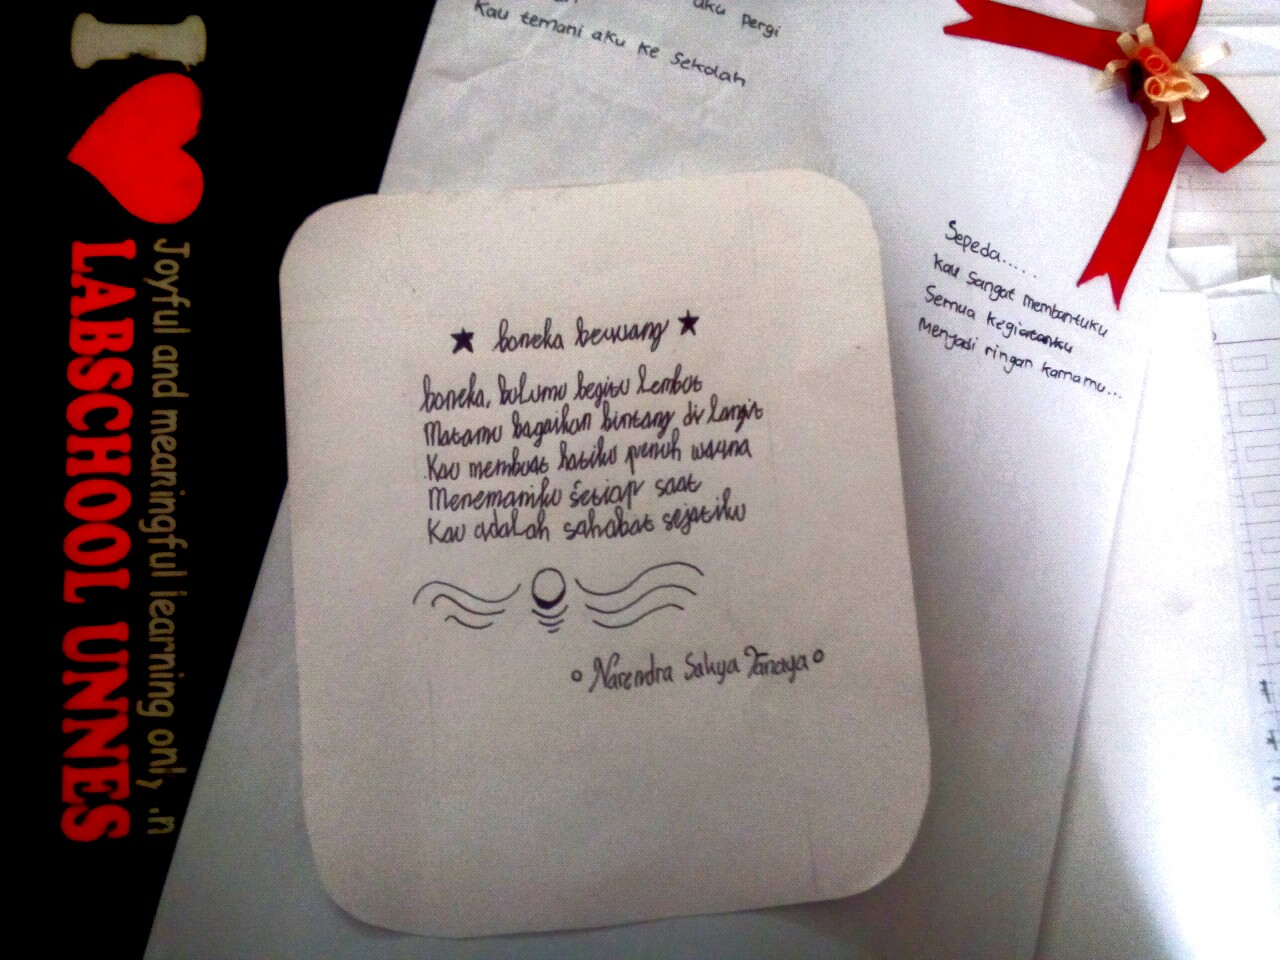 I
Joyful and meaningful learning onl, .n
LABSCHOOL UNNES
aku pergi
Kau temani aku ke sekolah
Sepeda.....
Kau sangat membantuku
Semua kegiatanku
Menjadi ringan karnamu...
boneka beruang
boneka, bulumu begitu lembut
Matamu bagaikan bintang di langit
Kau membuat hatiku penuh warna
Menemaniku setiap saat
Kau adalah sahabat sejatiku
Narendra Satya Tanaya